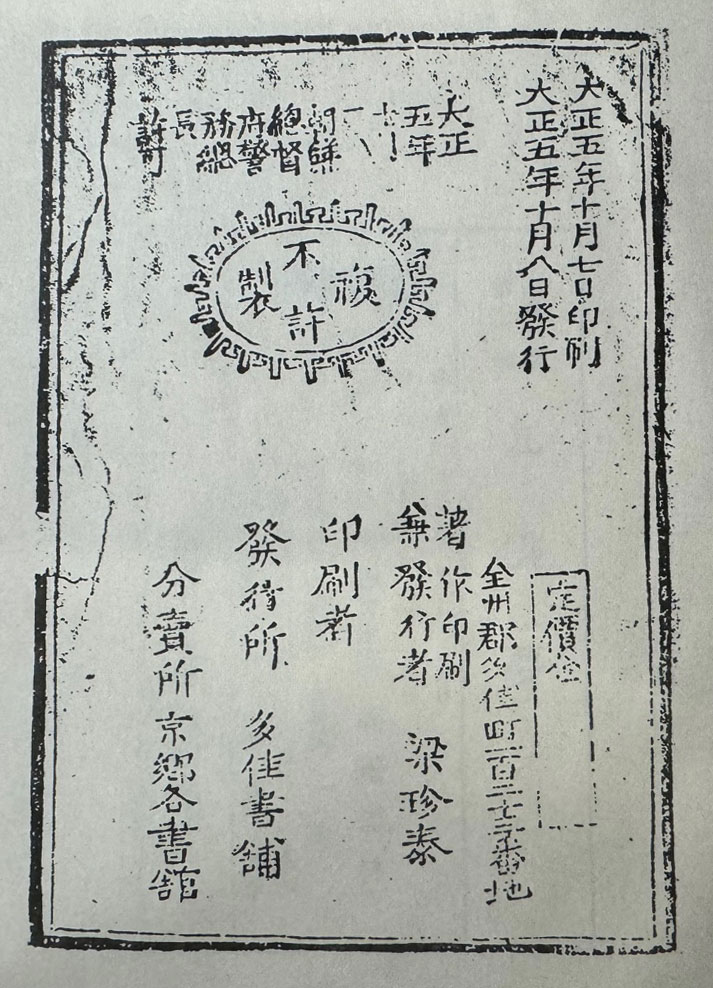 大正五年十月七日印刷
大正五年十月八日發行
大正
五年
朝鮮
總督
府警
務總
長
許可
不許複製
定價金
全州郡多佳町一百二十三番地
著作印刷
兼發行者 梁珍泰
印刷者
發行所 多佳書舖
分賣所 京鄕各書舘